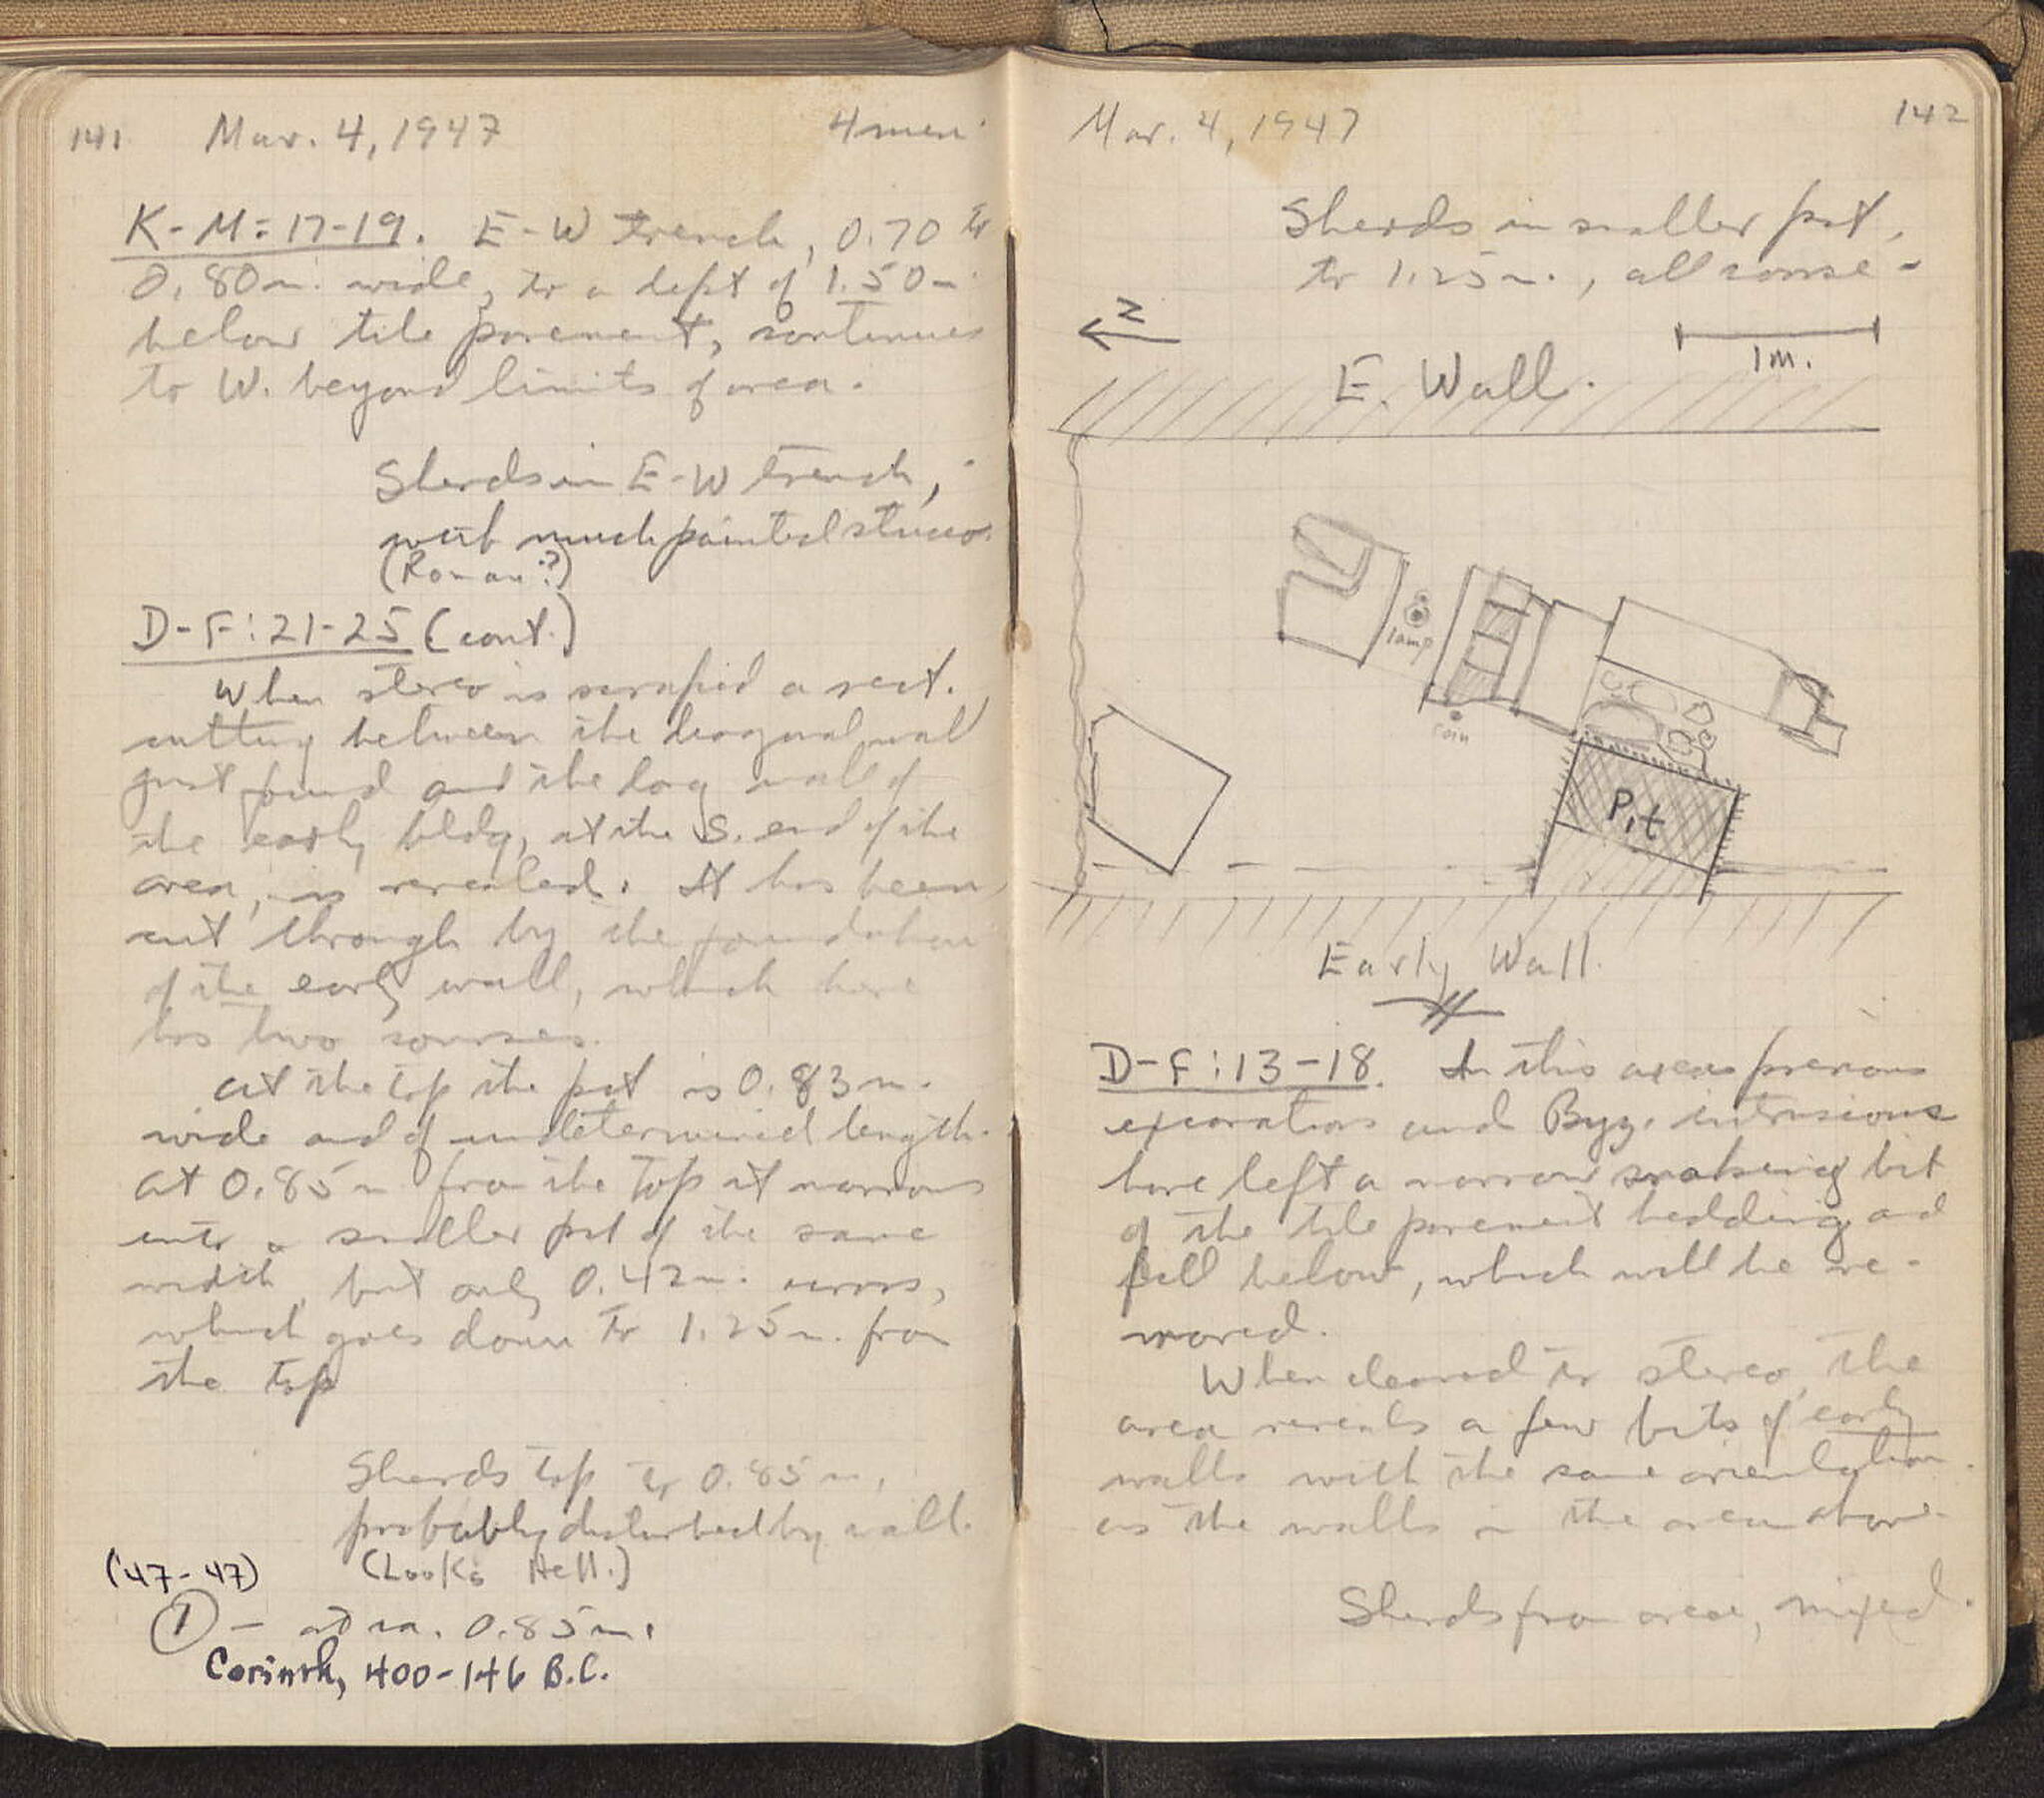 141 Mar. 4, 1947 4 men
K-M: 17-19. E-W trench, 0.70 to
0.80 m. wide, to a dept of 1.50 m
below tile pavement, continues
to W. beyond limits of area.
Sherds in E-W trench,
with much painted stucco.
(Roman?)
D-F: 21-25 (cont.)
When stereo is scraped a rect.
cutting between the diagonal wall
just found and the long wall of
the early bldg, at the S. end of the
area, is revealed. It has been
cut through by the foundation
of the early wall, which here
has two courses.
At the top the pit is 0.83 m.
wide and of undetermined length.
At 0.85 m from the top it narrows
into a smaller pit of the same
width, but only 0.42 m. across,
which goes down to 1.25 m. from
the top
Sherds top to 0.85 m,
probably disturbed by wall.
(Looks Hell.)
(47-47)
① - at ca. 0.85 m.
Corinth, 400-146 B.C.
Mar. 4, 1947 142
Sherds in smaller pit,
to 1.25 m., all conse-
N
1 m.
E. Wall.
lamp
coin
Pit
Early Wall.
D-F: 13-18. In this area previous
excavations and Byz. intrusions
have left a narrow snaking bit
of the tile pavement bedding and
fill below, which will be re-
moved.
When cleared to stereo, the
area reveals a few bits of early
walls with the same orientation
as the walls in the area above.
Sherds from area, mixed.